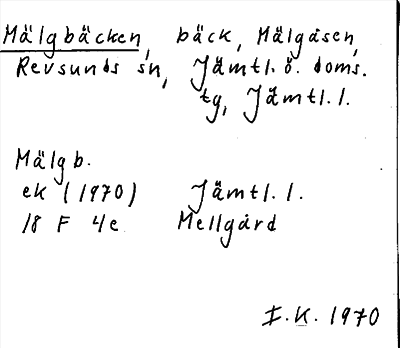 Mälgbäcken, bäck, Mälgåsen,
Revsunds sn, Jämtl. ö. doms.
tg, Jämtl. l.
Mälgb.
ek (1970) Jämtl. l.
18 F 4e Mellgård
I.K. 1970